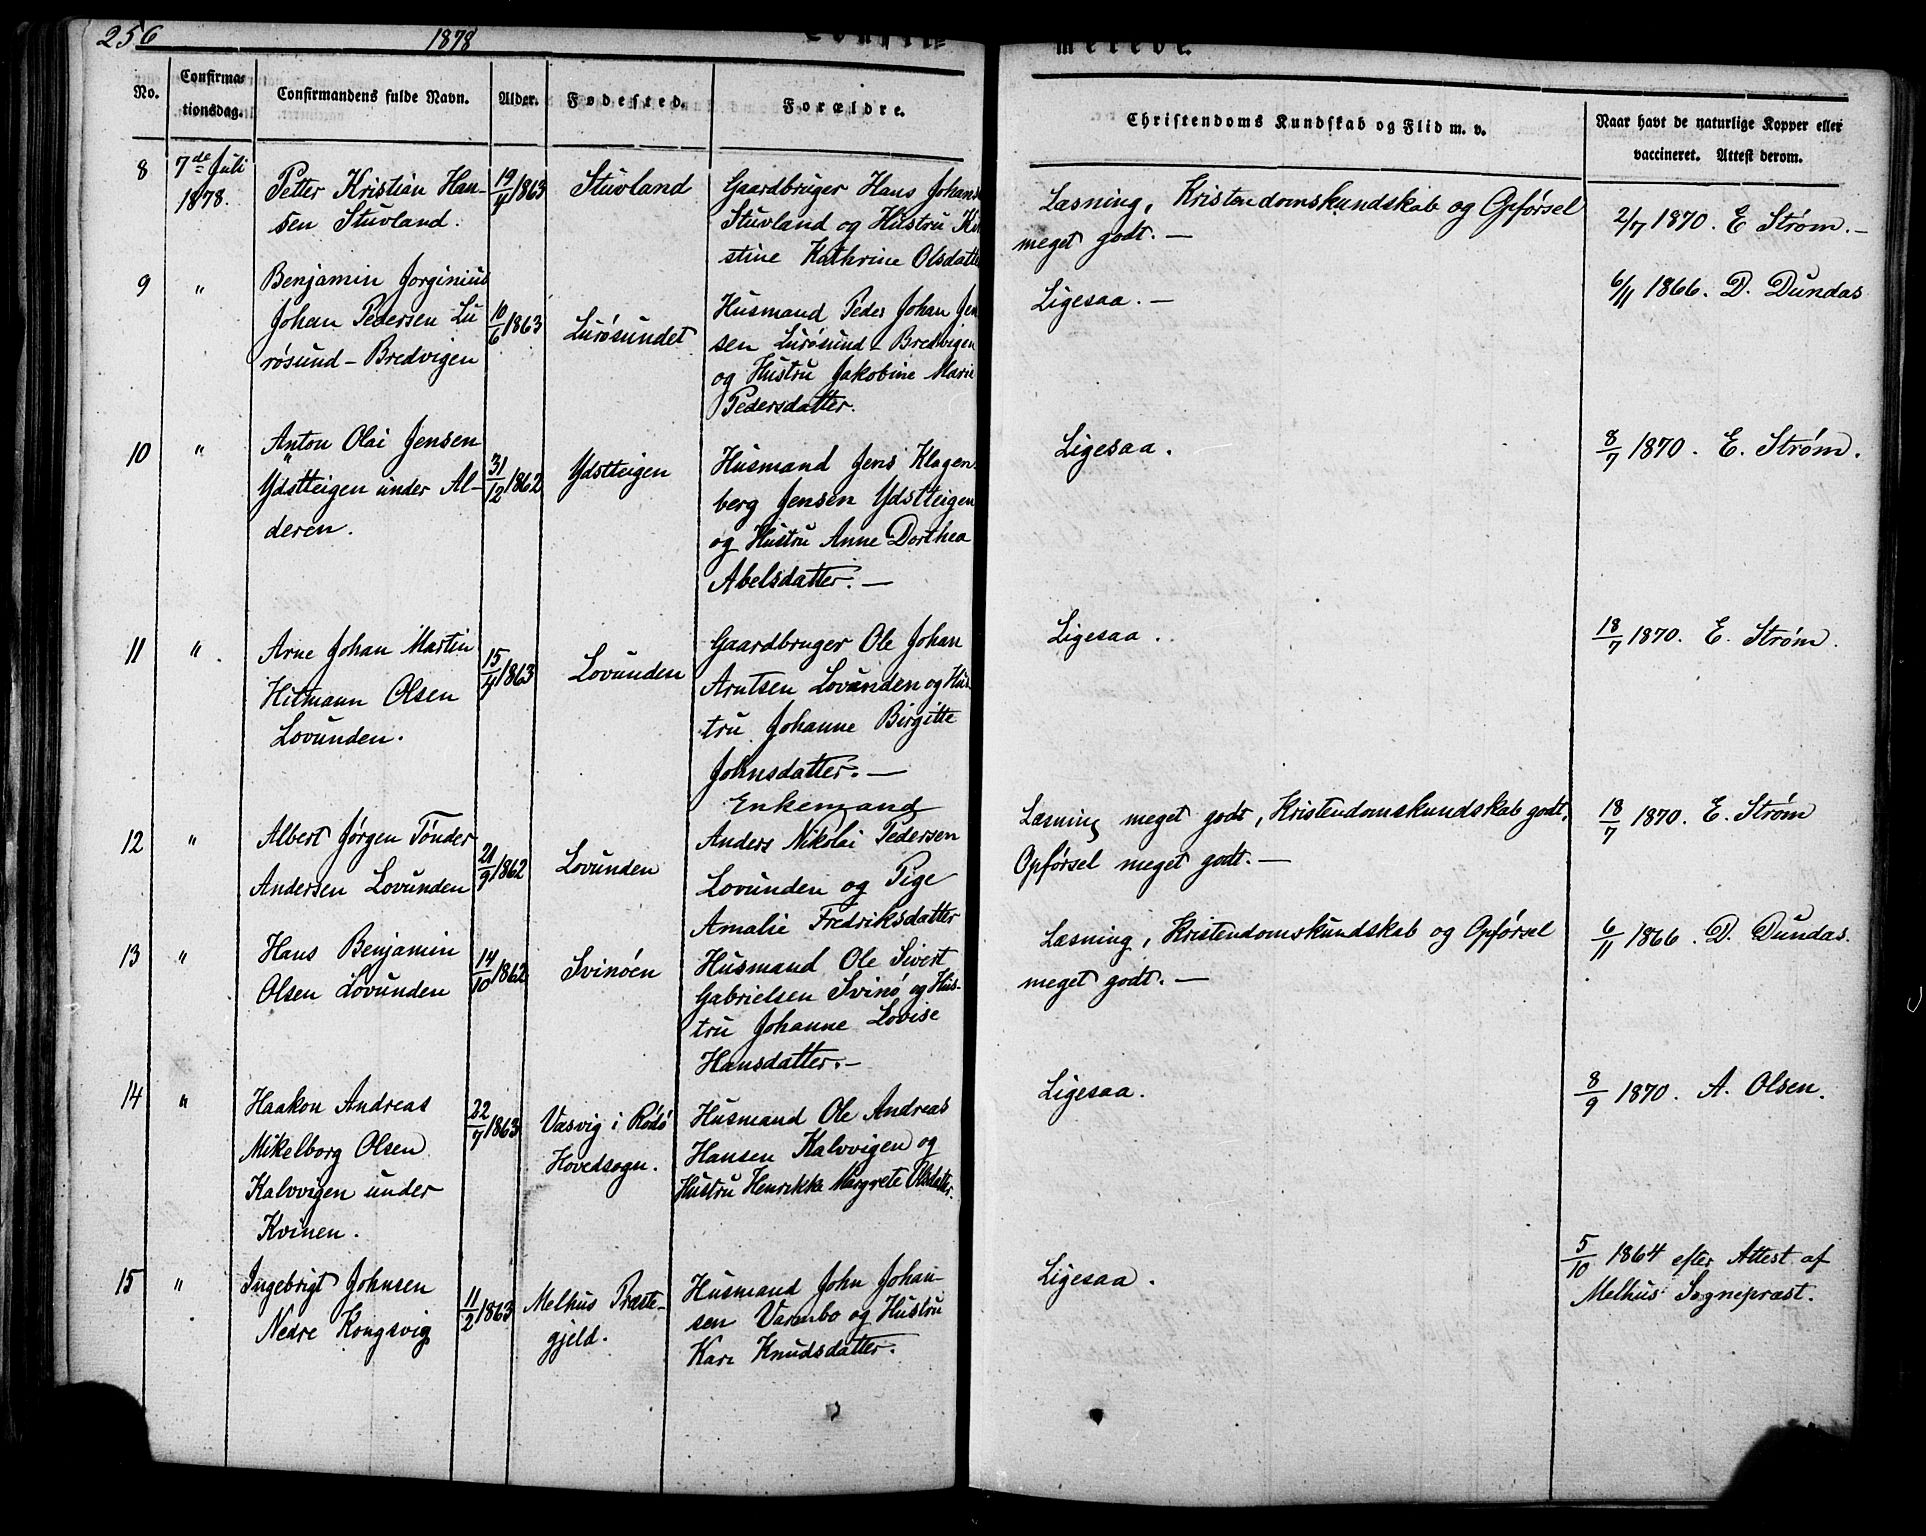 256
1878
Confir=
merede.
No.
Confirma=
tionsdag.
Confirmandens fulde Navn.
Alder.
Fødested.
Forældre.
Christendoms Kundskab og Flid m. v.
Naar havt de naturlige Kopper eller
vaccineret. Attest derom.
8
7de Juli
1878.
Petter Kristian Han-
sen Stuvland.
19/4 1863
Stuvland
Gaardbruger Hans Johans
Stuvland og Hustru Kir
stine Kathrine Olsdatter
Læsning, Kristendomskundskab og Opførsel
meget godt. —
2/7 1870. E Strøm. —
9
"
Benjamin Jorginius
Johan Pedersen Lu
røsund - Bredvigen
10/6 1863
Lurøsundet
Husmand Peder Johan Jen
sen Lurøsund - Bredvigen
og Hustru Jakobine Marie
Pedersdatter.
Ligesaa. —
6/11 1866. D. Dundas
10
"
Anton Olai Jensen
Ydstteigen under Al-
deren.
31/12 1862
Ydstteigen
Husmand Jens Klagen
berg Jensen Ydstteigen
og Hustru Anne Dorthea
Abelsdatter. —
Ligesaa.
8/7 1870. E. Strøm.
11
"
Arne Johan Martin
Hitmann Olsen
Lovunden.
15/4 1863
Lovunden
Gaardbruger Ole Johan
Arntsen Lovunden og Hus-
tru Johanne Birgitte
Johnsdatter. —
Ligesaa.
18/7 1870. E. Strøm.
12
"
Albert Jørgen Tønder
Andersen Lovunden
21/9 1862
Lovunden
Enkemand
Anders Nikolai Pedersen
Lovunden og Pige
Amalie Fredriksdatter
Læsning meget godt, Kristendomskundskab godt,
Opførsel meget godt. —
18/7 1870. E. Strøm
13
"
Hans Benjamin
Olsen Lovunden
14/10 1862
Svinøen
Husmand Ole Sivert
Gabrielsen Svinø og Hus-
tru Johanne Lovise
Hansdatter. —
Læsning, Kristendomskundskab og Opførsel
meget godt. —
6/11 1866. D. Dundas.
14
"
Haakon Andreas
Mikelborg Olsen
Kalvvigen under
Kvinen.
22/7 1863
Væsvig i Rødø
Hovedsogn.
Husmand Ole Andreas
Hansen Kalvvigen og
Hustru Henrikke Margrete Olsdatter.
Ligesaa.
8/9 1870. A. Olsen.
15
"
Ingebrigt Johnsen
Nedre Kongsvig
11/2 1863
Melhus Præste-
gjeld.
Husmand John Johan-
sen Varmbo og Hustru
Kari Knudsdatter.
Ligesaa.
5/10 1864 efter Attest af
Melhus Sognepræst.